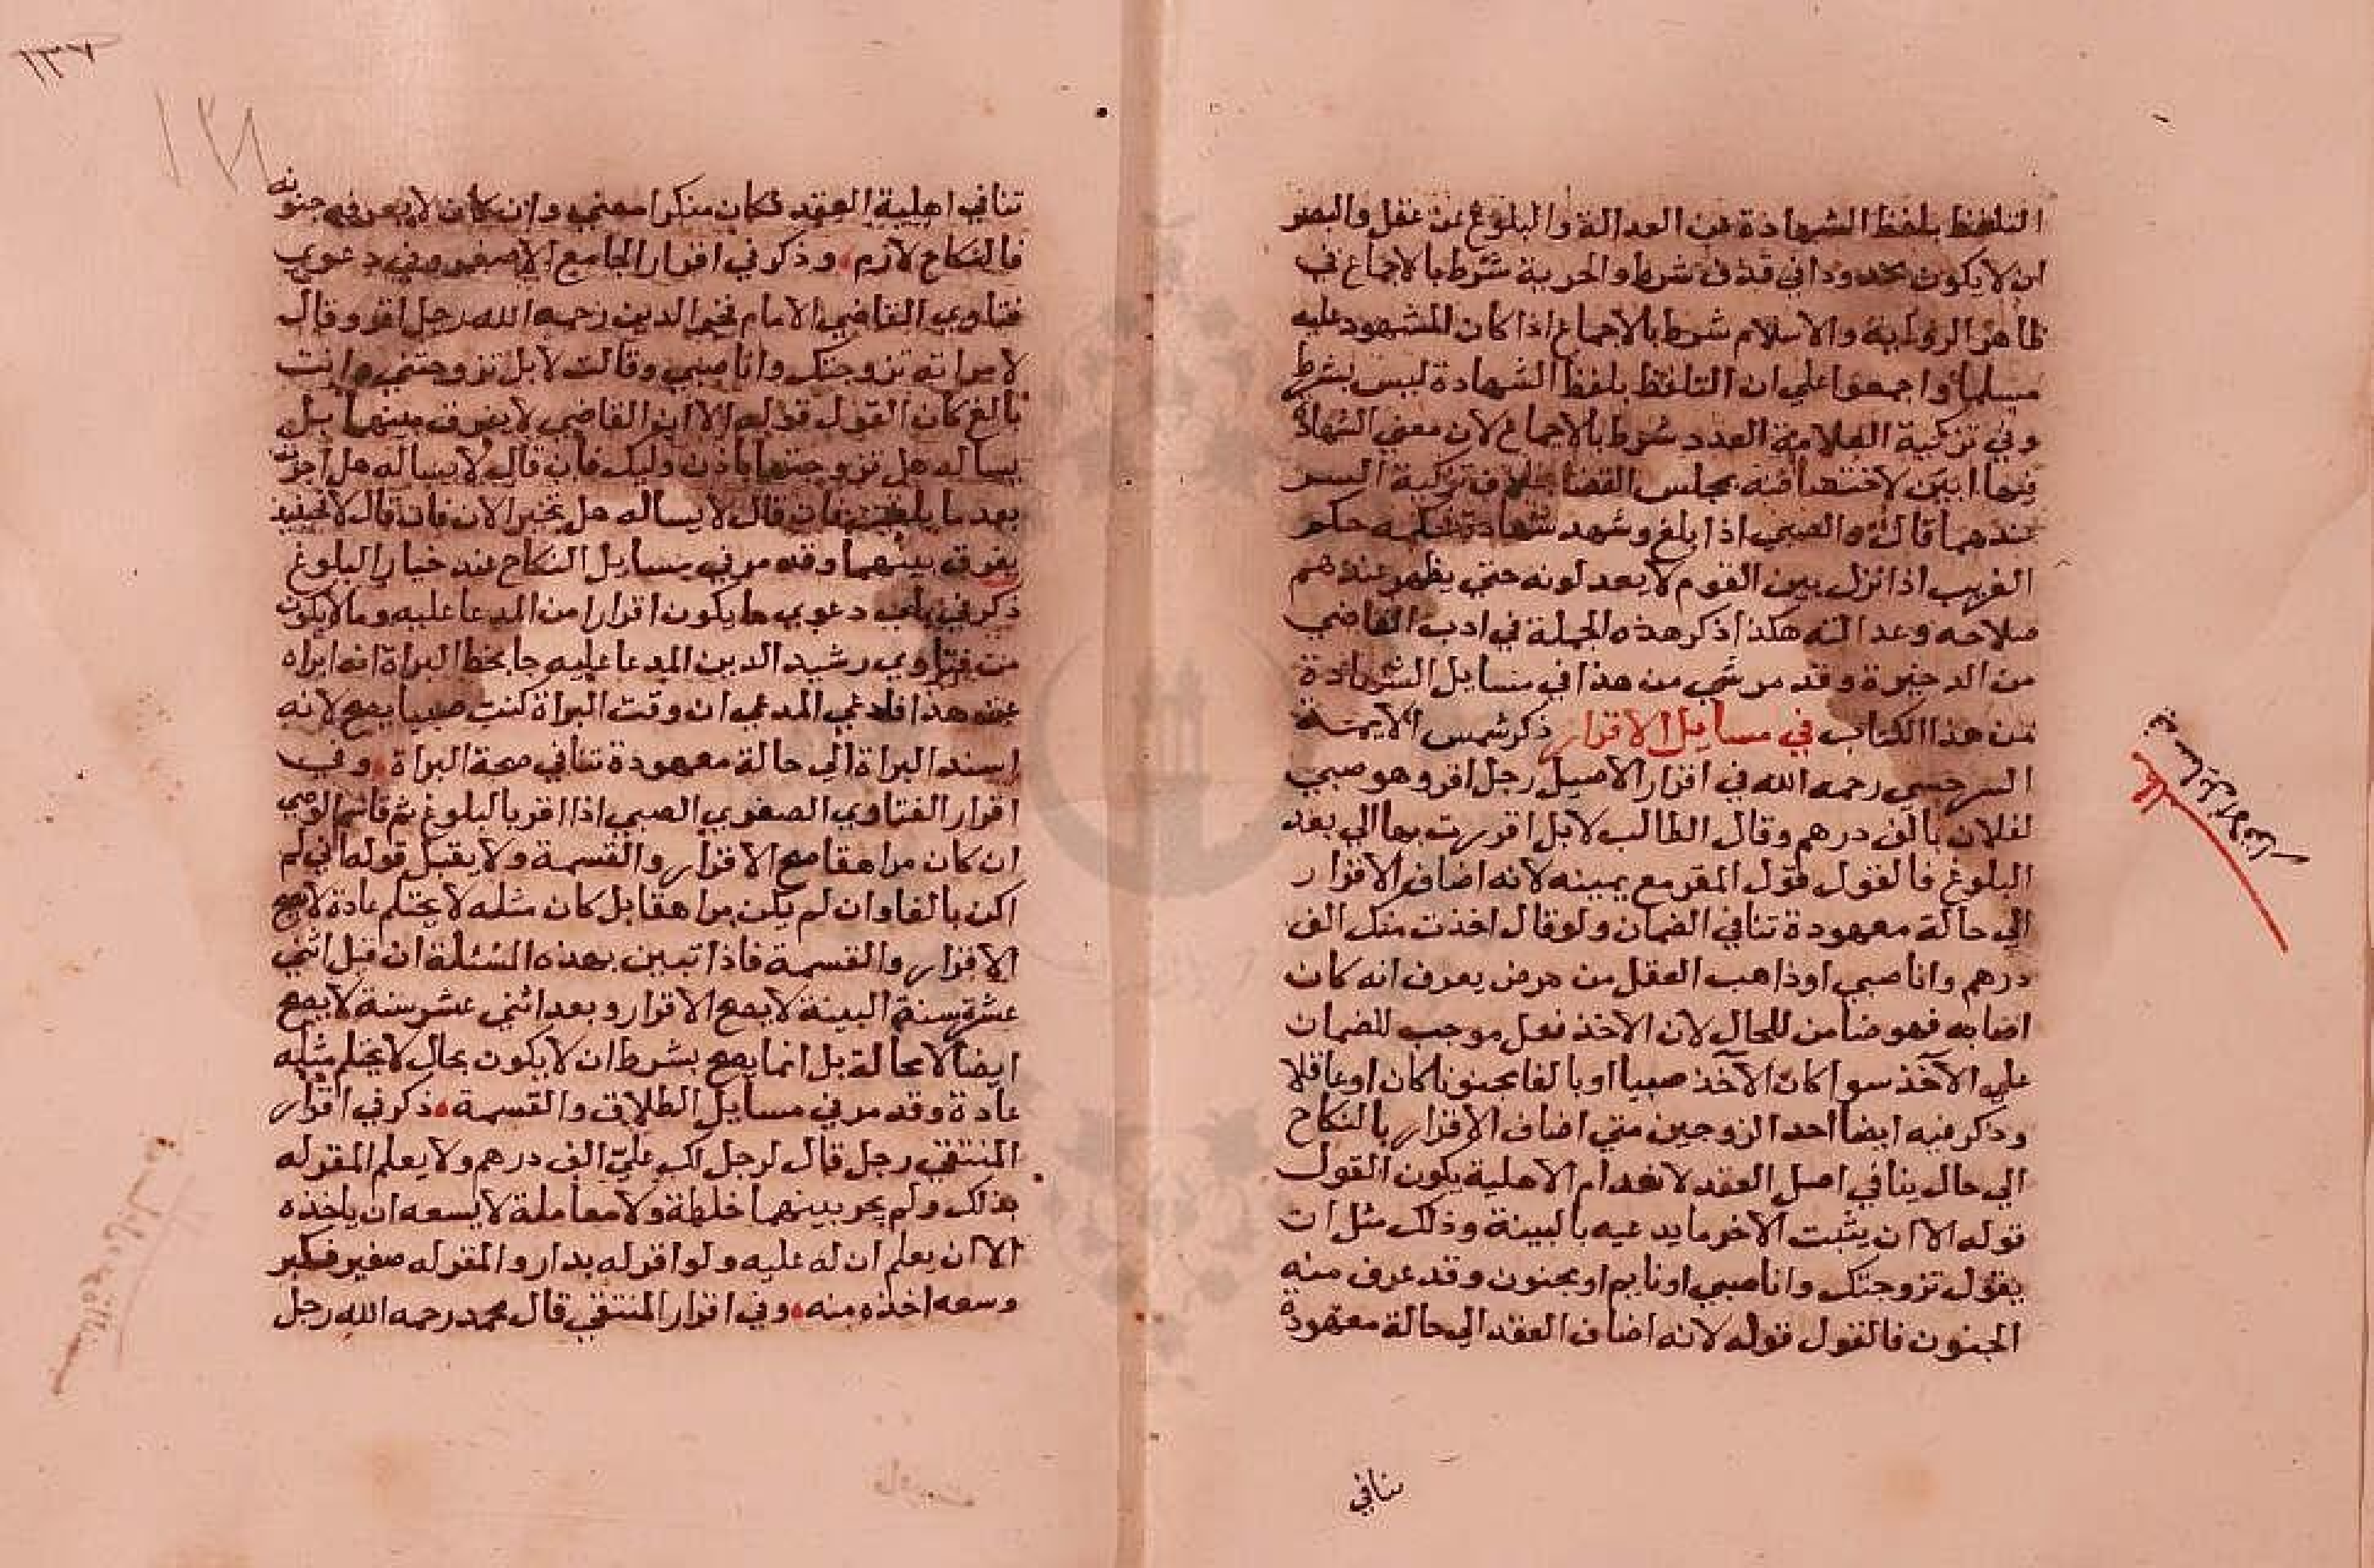 التلفظ بلفظ الشهادة من العدالة والبلوغ عن عقل والبصر
ان لا يكون محدودا في قذف شرط والحرية شرط بالاجماع في
ظاهر الرواية والاسلام شرط بالاجماع اذا كان المشهود عليه
مسلما واجمعوا علي ان التلفظ بلفظ الشهادة ليس بشرط
وفي تزكية العلانية العدد شرط بالاجماع لان معني الشهادة
فيها ابين لاختصاصه بمجلس القضا بخلاف تزكية السر
عندهما قال والصبي اذا بلغ وشهد شهادة فحكمه حكم
الغريب اذا نزل بين القوم لا يعدلونه حتي يظهر عندهم
صلاحه وعدالته هكذا ذكر هذه الجملة في ادب القاضي
من الدخيرة وقد مر شي من هذا في مسايل الشهادة
من هذا الكتاب في مسايل الاقرار ذكر شمس الايمة
السرخسي رحمه الله في اقرار الاصيل رجل اقر وهو صبي
لفلان بالف درهم وقال الطالب لا بل اقررت بها الي بعد
البلوغ فالقول قول المقر مع يمينه لانه اضاف الاقرار
الي حالة معهودة تنافي الضمان ولو قال اخذت منك الف
درهم وانا صبي او ذاهب العقل من مرض يعرف انه كان
اصابه فهو ضامن للحال لان الاخذ فعل موجب للضمان
علي الآخذ سوا كان الآخذ صبيا او بالغا مجنونا كان او عاقلا
وذكر فيه ايضا احد الزوجين متي اضاف الاقرار بالنكاح
الي حال ينافي اصل العقد لانعدام الاهلية يكون القول
قوله الا ان يثبت الاخر ما يدعيه بالبينة وذلك مثل ان
يقول تزوجتك وانا صبي او نايم او مجنون وقد عرف منه
الجنون فالقول قوله لانه اضاف العقد الي حالة معهودة
تنافي
في مسايل الاقرار
تنافي اهلية العقد فكان منكرا معني وان كان لا يعرف جنونه
فالنكاح لازم وذكر في اقرار الجامع الاصغر وفي دعوي
فتاوي القاضي الامام فخر الدين رحمه الله رجل اقر وقال
لامراته تزوجتك وانا صبي وقالت لا بل تزوجتني وانت
بالغ كان القول قوله الا ان القاضي لا يفرق بينهما بل
يساله هل تزوجتها باذن وليك فان قال لا يساله هل اجزت
بعد ما بلغت فان قال لا يساله هل تجيز الان فان قال لا فحينيذ
يفرق بينهما وقد مر في مسايل النكاح عند خيار البلوغ
ذكر في باب دعوي ما يكون اقرارا من المدعا عليه وما لا يكون
من فتاوي رشيد الدين المدعا عليه جا بخط البراة انه ابراه
عن هذا فادعي المدعي ان وقت البراة كنت صبيا يصح لانه
اسند البراة الي حالة معهودة تنافي صحة البراة وفي
اقرار الفتاوي الصغري الصبي اذا اقر بالبلوغ ثم قاسم الوصي
ان كان مراهقا صح الاقرار والقسمة ولا يقبل قوله اني لم
اكن بالغا وان لم يكن مراهقا بل كان مثله لا يحتلم عادة لا يصح
الاقرار والقسمة فاذا تبين بهذه المسئلة ان قبل اثني
عشرة سنة البينة لا يصح الاقرار وبعد اثني عشر سنة لا يصح
ايضا لا محالة بل انما يصح بشرط ان لا يكون بحال لا يحتلم مثله
عادة وقد مر في مسايل الطلاق والقسمة ذكر في اقرار
المنتقي رجل قال لرجل لك علي الف درهم ولا يعلم المقر له
بذلك ولم يجر بينهما خلطة ولا معاملة لا يسعه ان ياخذه
الا ان يعلم ان له عليه ولو اقر له بدار والمقر له صغير فكبر
وسعه اخذه منه وفي اقرار المنتقي قال محمد رحمه الله رجل